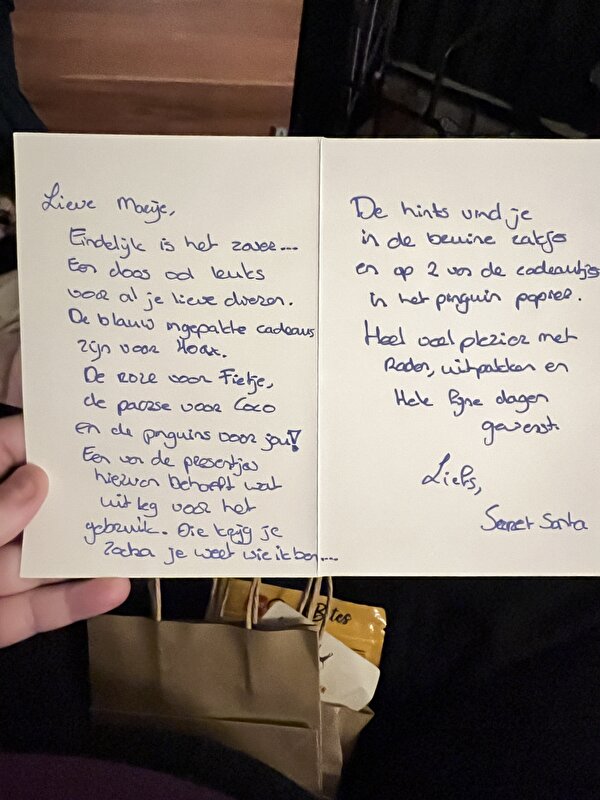 Lieve Marije,
Eindelijk is het zover...
Een doos vol leuks
voor al je lieve dieren.
De blauw ingepakte cadeaus
zijn voor
De roze voor Fietje,
de paarse voor Coco
en de pinguins voor jou!
Een van de presentjes
hiervan behoeft wat
uitleg voor het
gebruik. Die krijg je
zodra je weet wie ik ben....
De hints vind je
in de bruine zakjes
en op 2 van de cadeautjes
in het pinguin papier.
Heel veel plezier met
Raden, uitpakken en
Hele fijne dagen
gewenst
Liefs,
Secret Santa
Bites